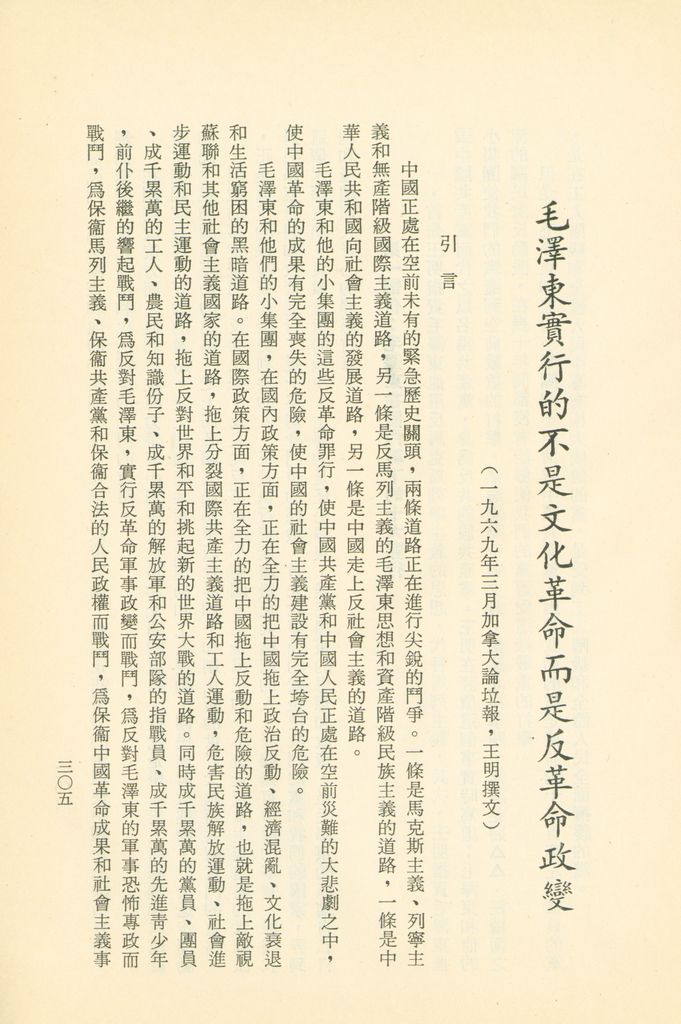 毛澤東實行的不是文化革命而是反革命政變
（一九六九年三月加拿大論壇報，王明撰文）
引言
中國正處在空前未有的緊急歷史關頭，兩條道路正在進行尖銳的鬥爭。一條是馬克斯主義、列寧主
義和無產階級國際主義道路，另一條是反馬列主義的毛澤東思想和資產階級民族主義的道路，一條是中
華人民共和國向社會主義的發展道路，另一條是中國走上反社會主義的道路。
毛澤東和他的小集團的這些反革命罪行，使中國共產黨和中國人民正處在空前災難的大悲劇之中，
使中國革命的成果有完全喪失的危險，使中國的社會主義建設有完全垮台的危險。
毛澤東和他們的小集團，在國內政策方面，正在全力的把中國拖上政治反動、經濟混亂、文化衰退
和生活窮困的黑暗道路。在國際政策方面，正在全力的把中國拖上反動和危險的道路，也就是拖上敵視
蘇聯和其他社會主義國家的道路，拖上分裂國際共產主義道路和工人運動，危害民族解放運動、社會進
步運動和民主運動的道路，拖上反對世界和平和挑起新的世界大戰的道路。同時成千累萬的黨員、團員
、成千累萬的工人、農民和知識份子、成千累萬的解放軍和公安部隊的指戰員、成千累萬的先進青少年
，前仆後繼的響起戰鬥，爲反對毛澤東，實行反革命軍事政變而戰鬥，爲反對毛澤東的軍事恐怖專政而
戰鬥，爲保衞馬列主義、保衞共產黨和保衞合法的人民政權而戰鬥，爲保衞中國革命成果和社會主義事
三〇五